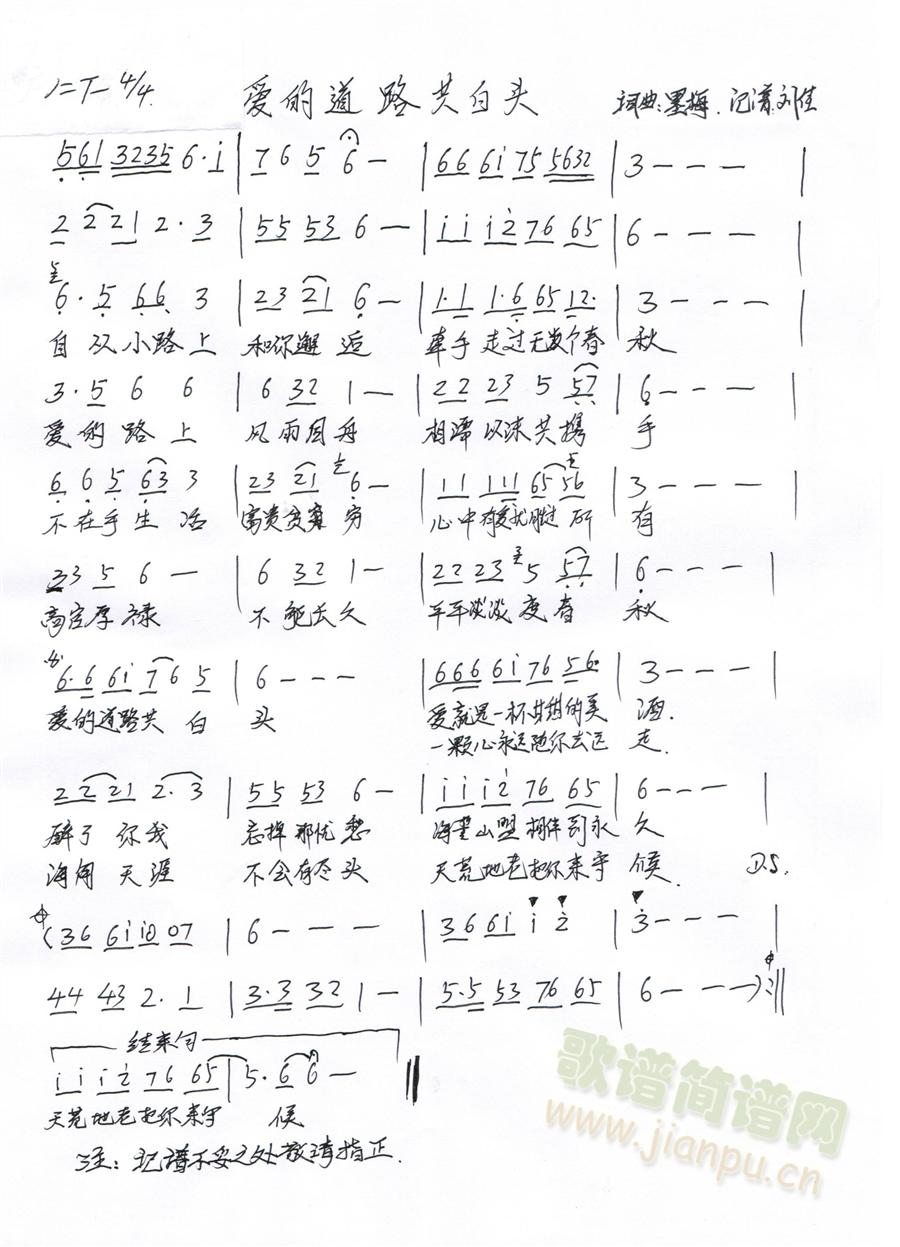 1=F 4/4 爱的道路共白头 词曲:墨梅.记谱:刘佳
561 3235 6·i | 7 6 5 6 — | 66 6i 75 5632 | 3 — — — |
2 2 21 2·3 | 55 53 6 — | i i i2 76 65 | 6 — — —
6·5 66 3 | 23 21 6 — | 1·1 1·6 65 12· | 3 — — — |
自从小路上 和你邂逅 牵手走过无数个春 秋
3·5 6 6 | 6 32 1 — | 22 23 5 57 | 6 — — — |
爱的路上 风雨同舟 相濡以沫共携 手
6 6 5 63 3 | 23 21 6 — | 11 111 65 56 | 3 — — — |
不在乎生活 富贵贫穷 心中有爱 所 有
3 3 5 6 — | 6 32 1 — | 22 23 5 57 | 6 — — — |
高官厚禄 不能长久 平平淡淡度春 秋
6·6 6i 7 6 5 | 6 — — — 666 6i 76 56 | 3 — — — |
爱的道路共白 头 爱就是一杯甘甜的美 酒.
一颗心永远随你去远 走.
22 21 2·3 | 55 53 6 — | i i i2 76 65 | 6 — — — |
醉了你我 忘掉那忧愁 海誓山盟相伴到永 久
海角天涯 不会有尽头 天荒地老把你来守 候. D.S.
(36 6i i0 07 | 6 — — — | 36 6i i 2 | 3 — — — |
44 43 2·1 | 3·3 32 1 — | 5·5 53 76 65 | 6 — — — ):||
结束句
i i i2 76 65 | 5·6 6 — ||
天荒地老把你来守 候
注:记谱不妥之处敬请指正.
歌谱简谱网
www.jianpu.cn